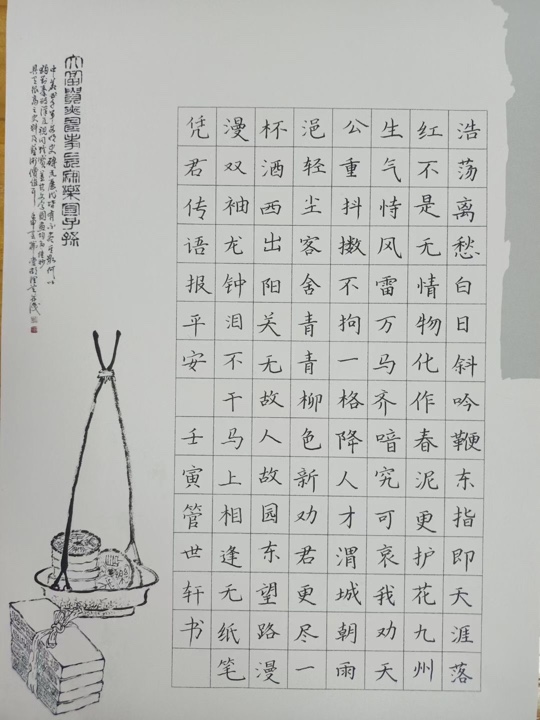 浩荡离愁白日斜吟鞭东指即天涯落
红不是无情物化作春泥更护花九州
生气恃风雷万马齐喑究可哀我劝天
公重抖擞不拘一格降人才渭城朝雨
浥轻尘客舍青青柳色新劝君更尽一
杯酒西出阳关无故人故园东望路漫
漫双袖龙钟泪不干马上相逢无纸笔
凭君传语报平安 壬寅管世轩书